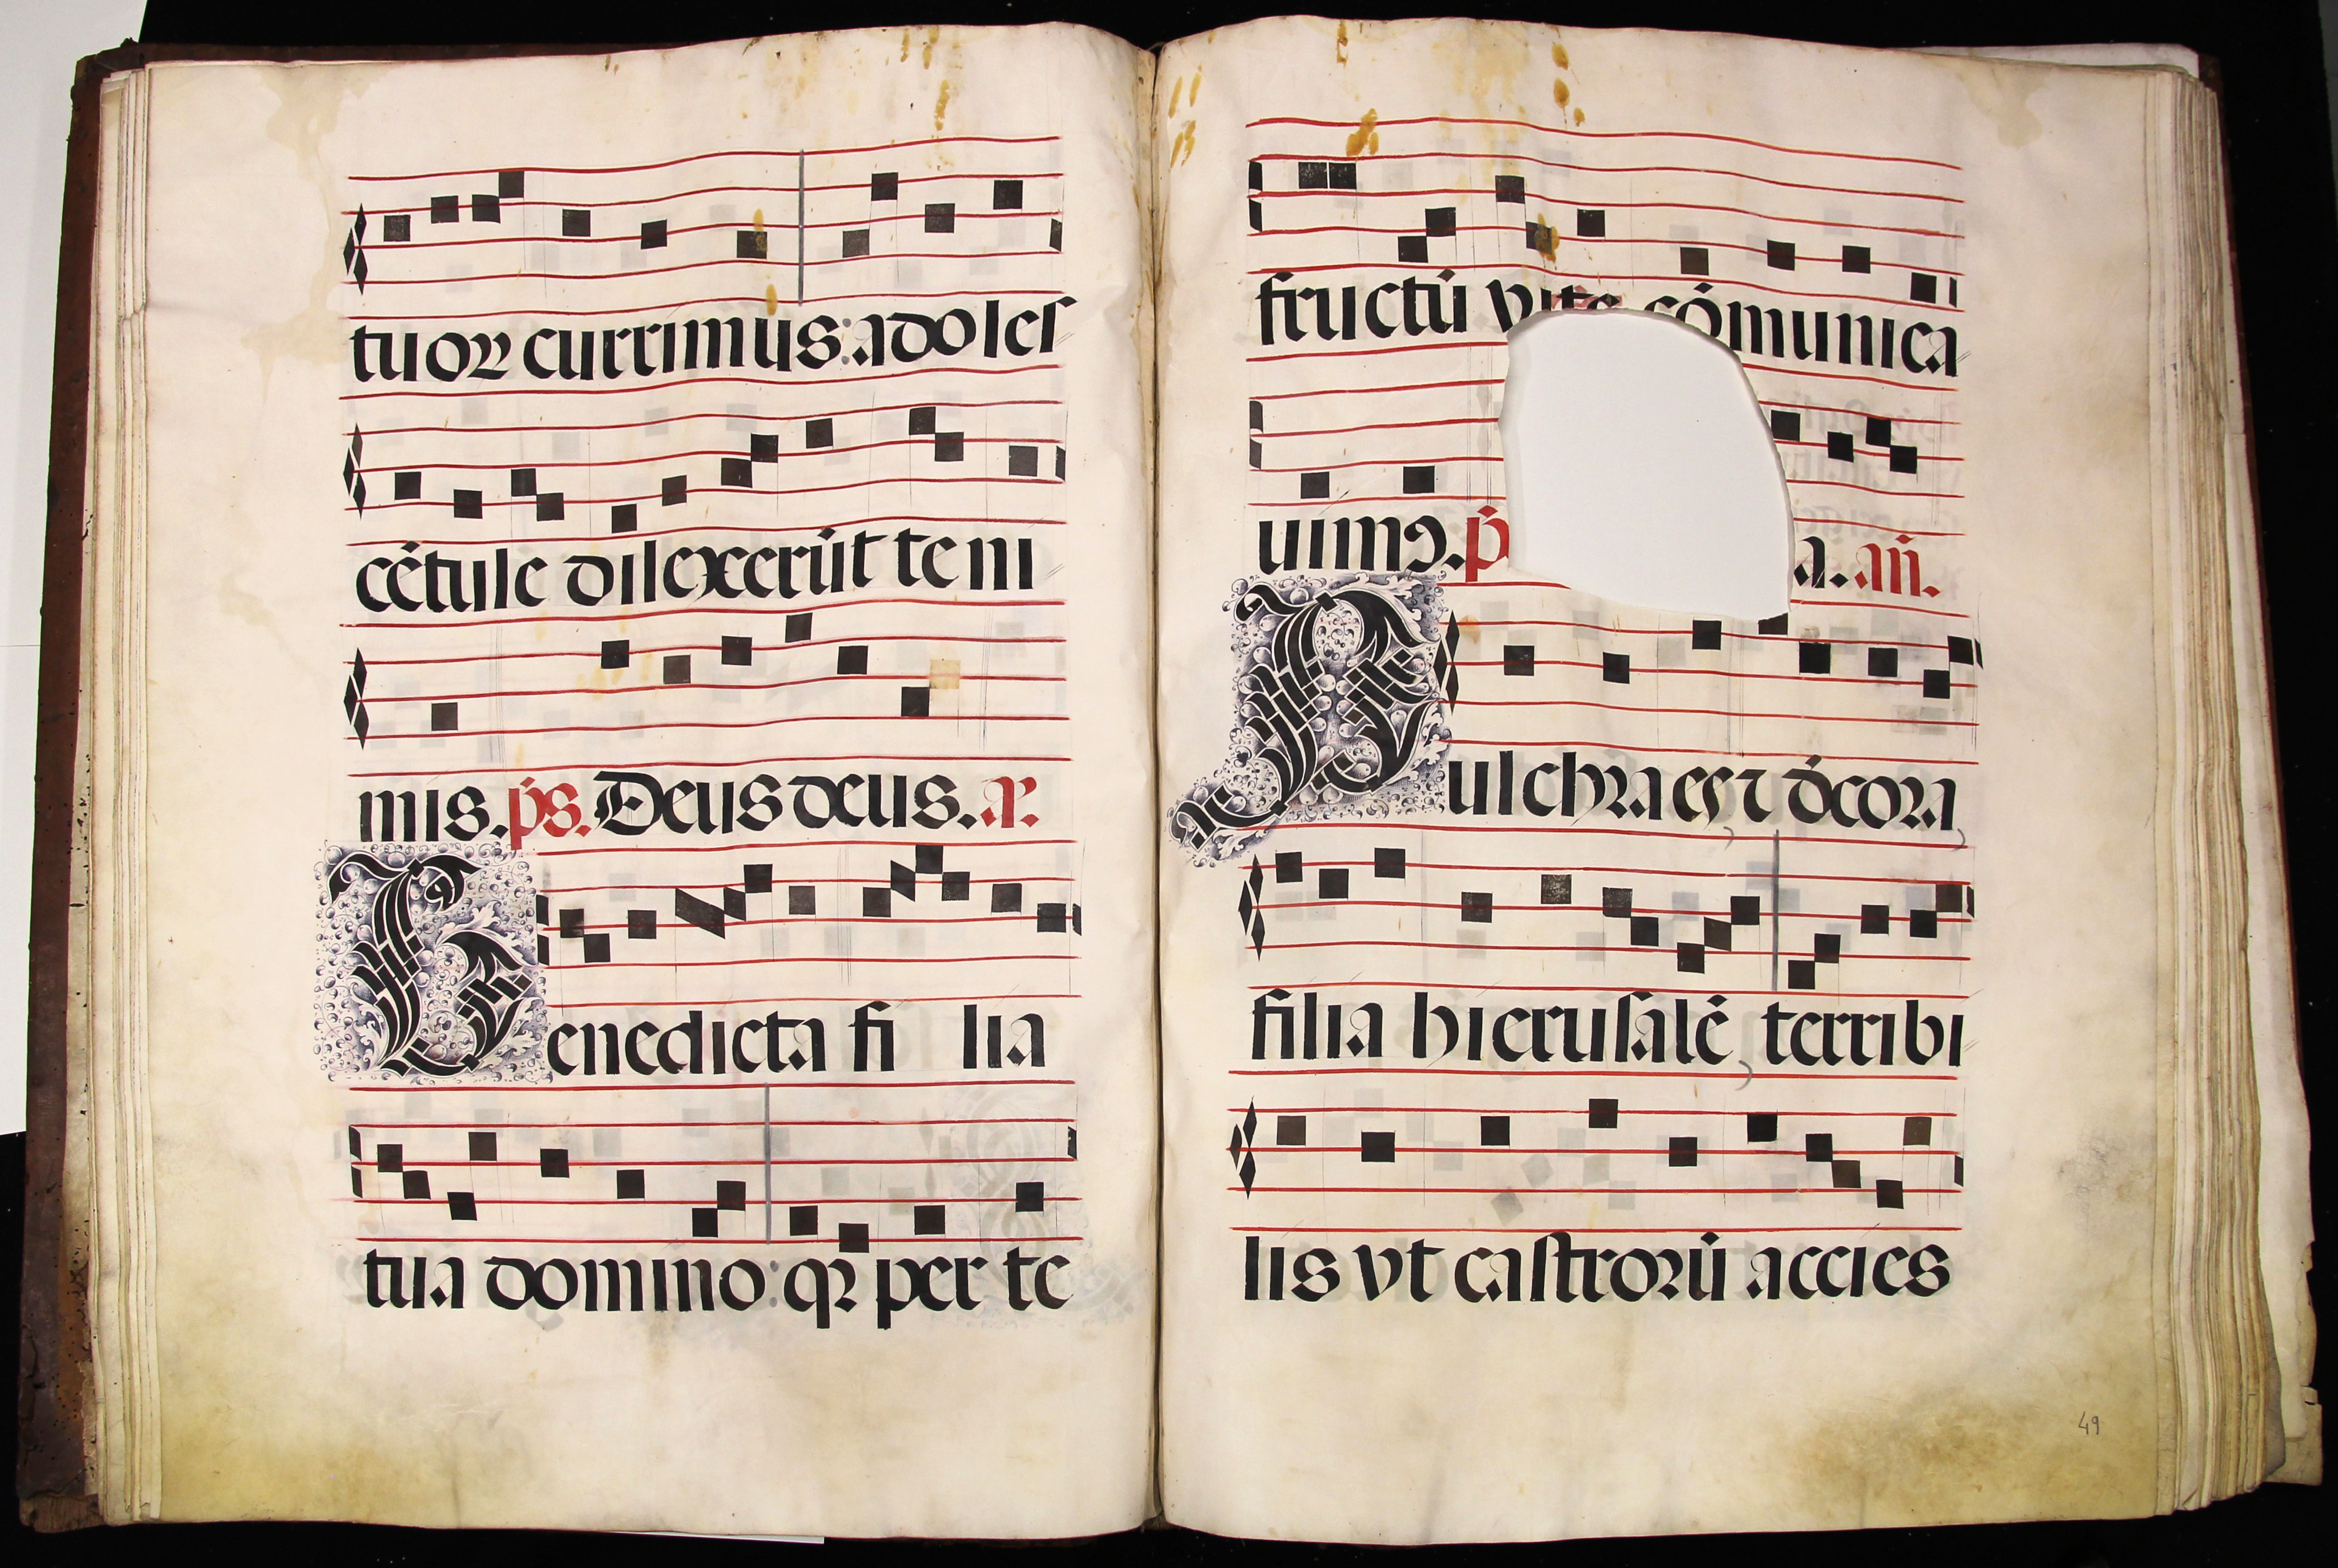 tuoꝝ currimus: adolesſ
cētule dilexerūt te ni
mis. p̄s. Deus deus. a.
Benedicta fi lia
tua domino: qꝛ per te
fructū vite cōmunica
uimꝯ. p̄ a. an̄.
Pulchra es ⁊ dcora
filia hieruſalē terribi
lis vt caſtrorū accies
49